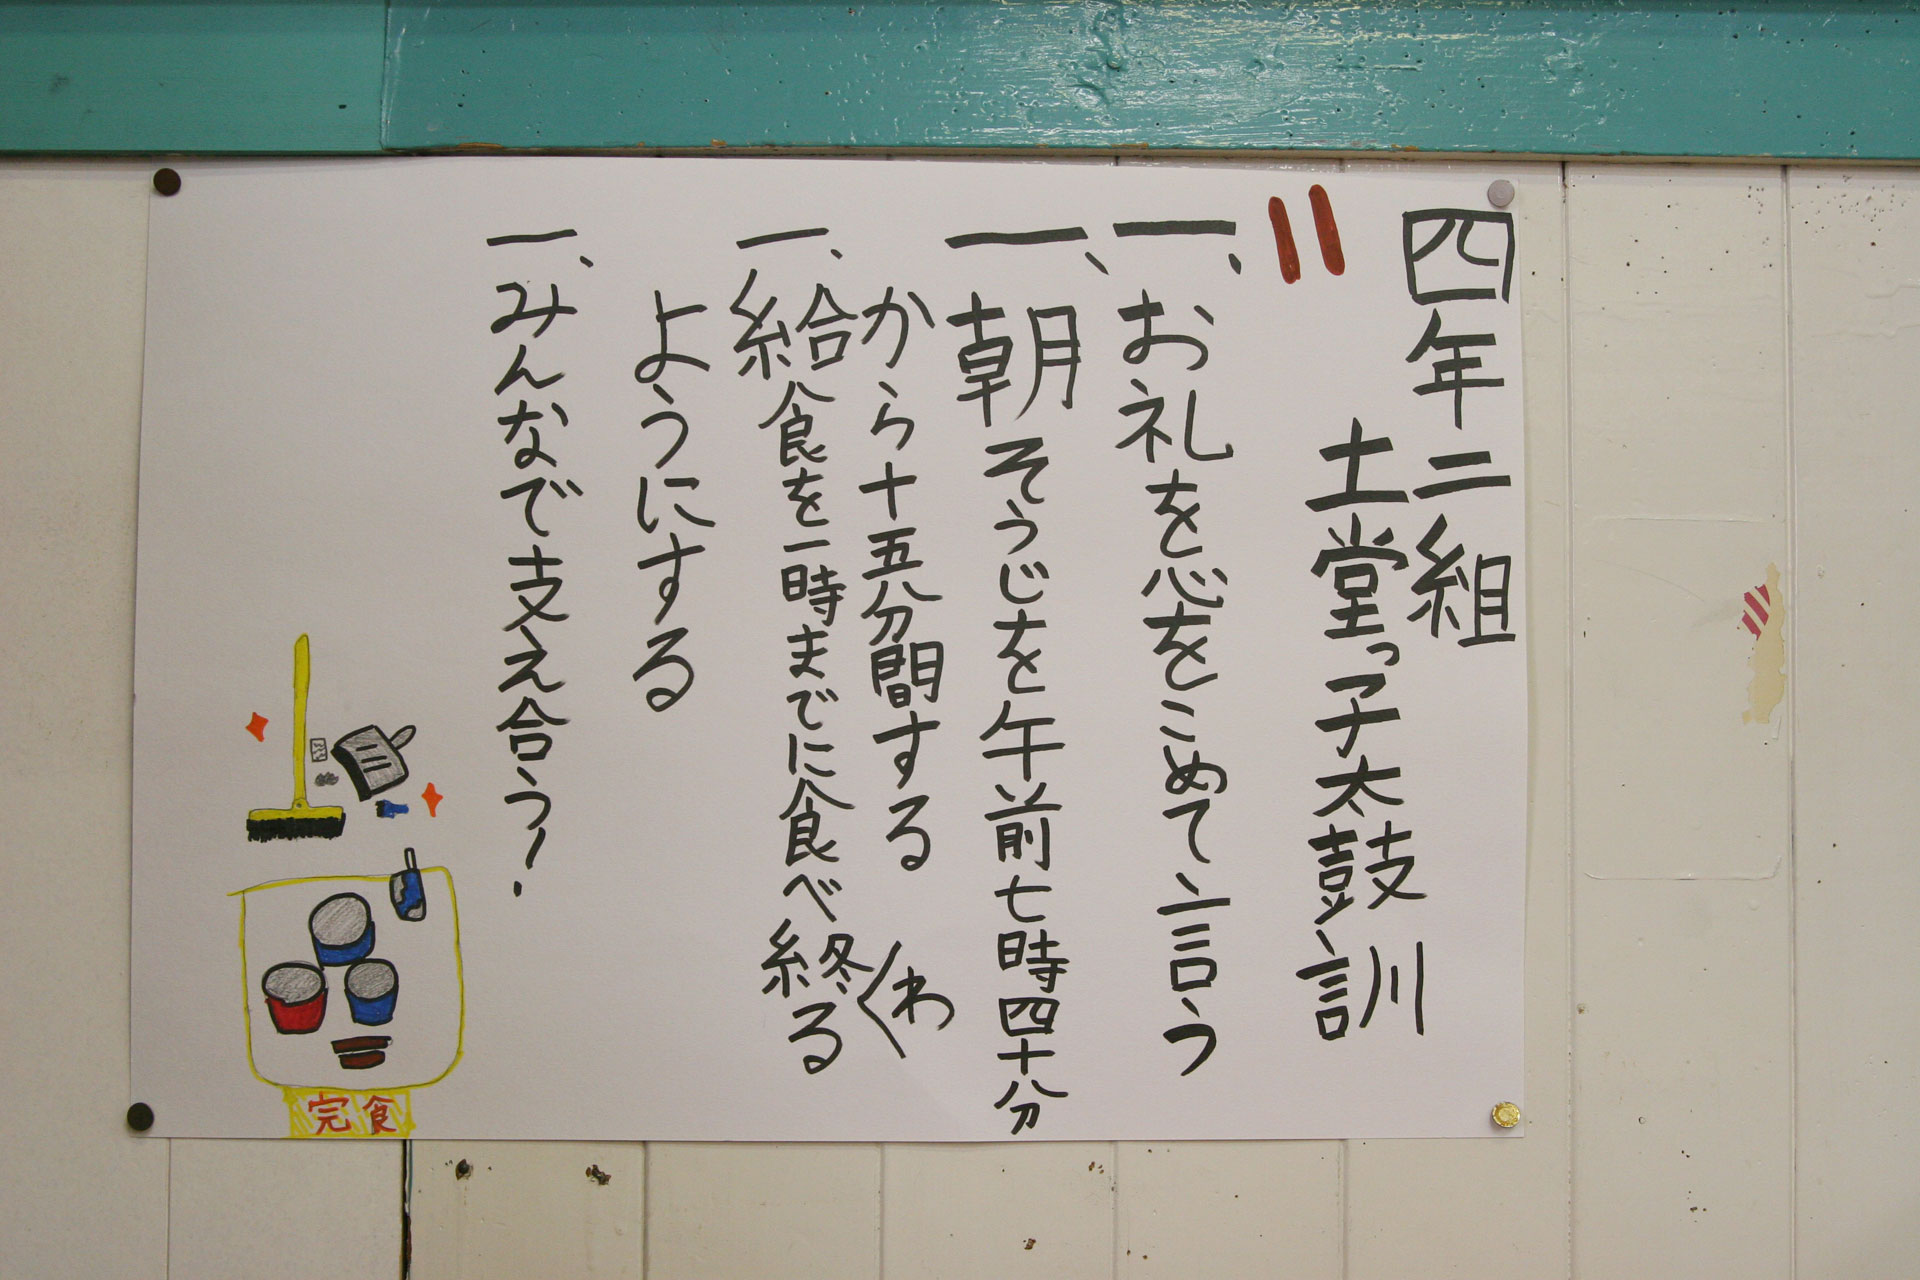 四年二組
土堂っ子太鼓訓
一、お礼を心をこめて言う
一、朝そうじを午前七時四十分
から十五分間する
一、給食を一時までに食べ終わる
ようにする
一、みんなで支え合う!
完食